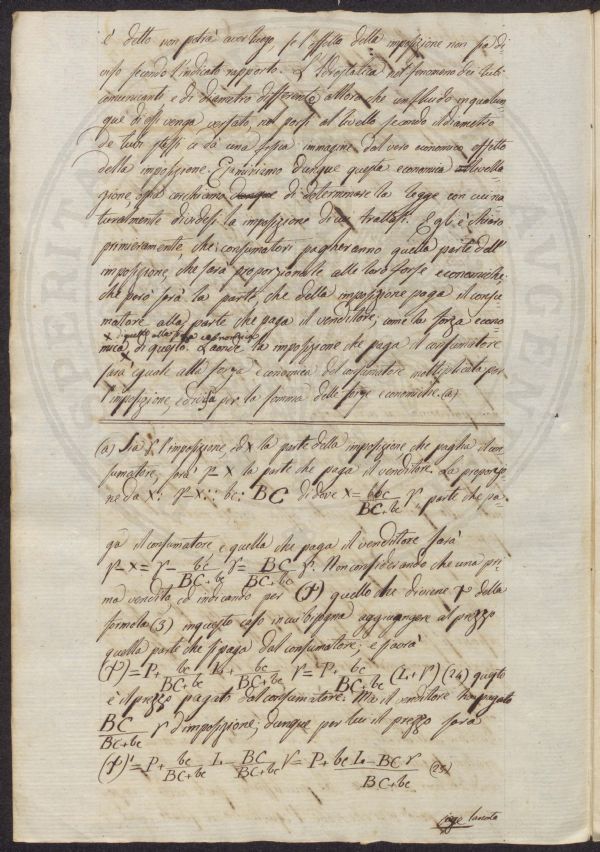 è detto non potrà aver luogo, se l'effetto della imposizione non sia di-
viso secondo l'indicato rapporto. L'Idrostatica nel fenomeno dei tubi
comunicanti, e di diametro differente, allora che un fluido in qualun-
que di essi venga versato, nel porsi al livello secondo il diametro
de tubi stessi ci dà una fosca immagine del vero economico effetto
della imposizione. Esaminiamo dunque questa economica livella
zione, ossia cerchiamo dunque di determinare la legge con cui na
turalmente dividesi la imposizione di cui trattasi. Egli è chiaro
primieramente, che i consumatori pagheranno quella parte dell'
imposizione, che sarà proporzionale alle loro forze economiche;
che però sarà la parte, che della imposizione paga il consu
mattore alla parte che paga il venditore; come la forza econo-
x di quello alla forza economica
mica x di questo. Laonde la imposizione che paga il consumatore
sarà eguale alla forza economica del consumatore moltiplicata per
l'imposizione, e divisa per la somma delle forze economiche. (a)
(a) Sia r l'imposizione, ed x la parte della imposizione che paghia il con
sumatore, sarà r - x la parte che paga il venditore. La proporzio
ne dà x : r - x :: bc : BC di dove x = bc/BC+bc r parte che pa-
ga il consumatore, e quella che paga il venditore sarà
r - x = r - bc/BC+bc r = BC/BC+bc r. Non considerando che una pri-
ma vendita, ed indicando per (r) quello che diviene r della
formola (3) in questo caso in cui bisogna aggiungere al prezzo
quella parte che si paga dal consumatore; e si avrà
(r) = P + bc/BC+bc L + bc/BC+bc r = P + bc/BC+bc (L + r) (24) questo
è il prezzo pagato dal consumatore. Ma il venditore ha pagato
BC/BC+bc r d'imposizione; dunque per lui il prezzo sarà
(r)' = P + bc/BC+bc L - BC/BC+bc r = P + bc L - BC r/BC+bc (25)